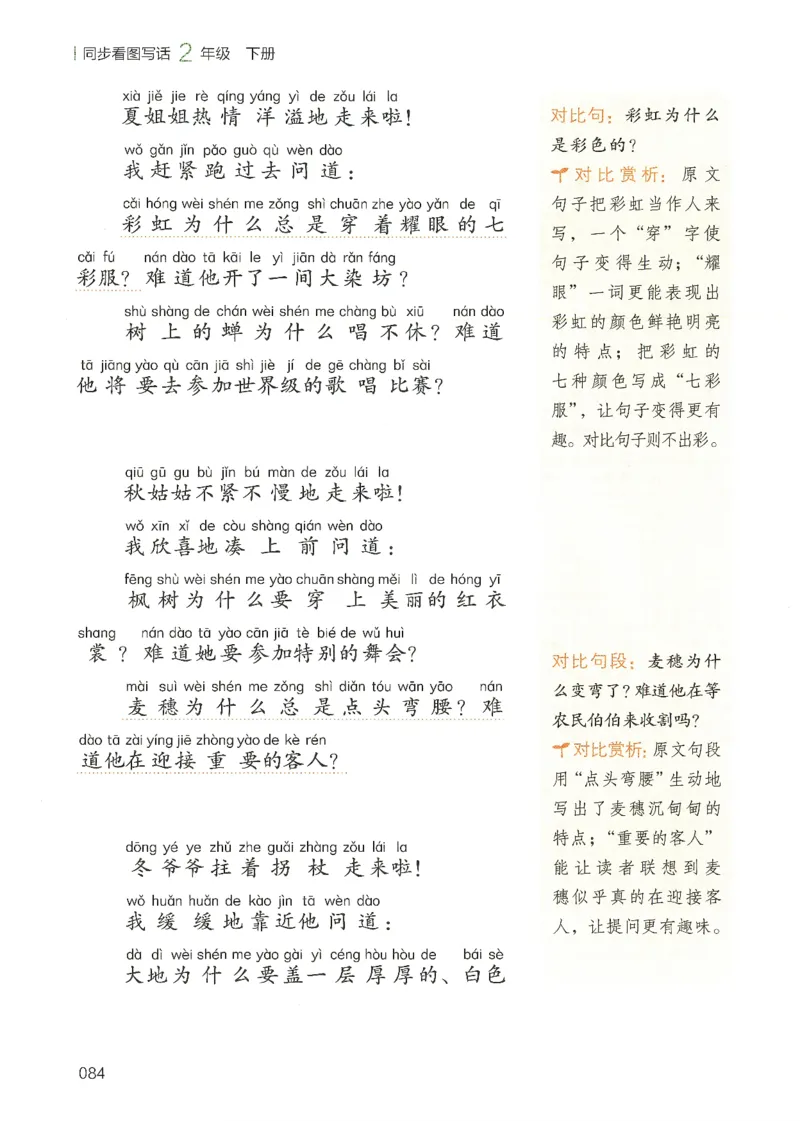 同步看图写话 2 年级 下册
xià jiě jie rè qíng yáng yì de zǒu lái la
夏姐姐热情洋溢地走来啦！
wǒ gǎn jǐn pǎo guò qù wèn dào
我赶紧跑过去问道：
cǎi hóng wèi shén me zǒng shì chuān zhe yào yǎn de qī
彩虹为什么总是穿着耀眼的七
cǎi fú nán dào tā kāi le yì jiān dà rǎn fáng
彩服？难道他开了一间大染坊？
shù shàng de chán wèi shén me chàng bù xiū nán dào
树上的蝉为什么唱不休？难道
tā jiāng yào qù cān jiā shì jiè jí de gē chàng bǐ sài
他将要去参加世界级的歌唱比赛？
qiū gū gu bù jǐn bú màn de zǒu lái la
秋姑姑不紧不慢地走来啦！
wǒ xīn xǐ de còu shàng qián wèn dào
我欣喜地凑上前问道：
fēng shù wèi shén me yào chuān shàng měi lì de hóng yī
枫树为什么要穿上美丽的红衣
shang nán dào tā yào cān jiā tè bié de wǔ huì
裳？难道她要参加特别的舞会？
mài suì wèi shén me zǒng shì diǎn tóu wān yāo nán
麦穗为什么总是点头弯腰？难
dào tā zài yíng jiē zhòng yào de kè rén
道他在迎接重要的客人？
dōng yé ye zhǔ zhe guǎi zhàng zǒu lái la
冬爷爷拄着拐杖走来啦！
wǒ huǎn huǎn de kào jìn tā wèn dào
我缓缓地靠近他问道：
dà dì wèi shén me yào gài yì céng hòu hòu de bái sè
大地为什么要盖一层厚厚的、白色
对比句：彩虹为什么
是彩色的？
对比赏析：原文
句子把彩虹当作人来
写，一个“穿”字使
句子变得生动；“耀
眼”一词更能表现出
彩虹的颜色鲜艳明亮
的特点；把彩虹的
七种颜色写成“七彩
服”，让句子变得更有
趣。对比句子则不出彩。
对比句段：麦穗为什
么变弯了？难道他在等
农民伯伯来收割吗？
对比赏析：原文句段
用“点头弯腰”生动地
写出了麦穗沉甸甸的
特点；“重要的客人”
能让读者联想到麦
穗似乎真的在迎接客
人，让提问更有趣味。
084